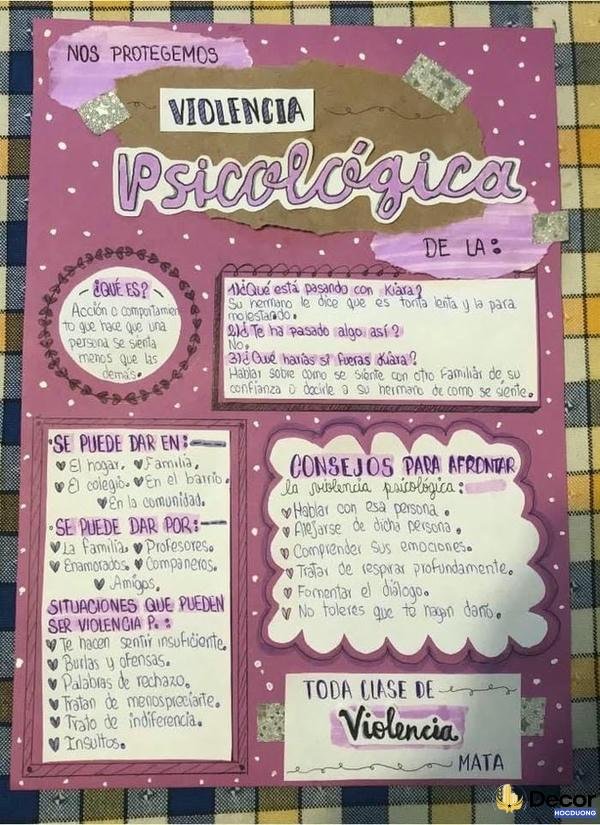 NOS PROTEGEMOS
VIOLENCIA
Psicológica
DE LA:
¿QUÉ ES?
Acción o comportamien
to que hace que una
persona se sienta
menos que las
demás.
1)¿Qué está pasando con Kiara?
Su hermano le dice que es tonta lenta y la para
molestando.
2)¿Te ha pasado algo así?
No.
3)¿Qué harías si fueras Kiara?
Hablar sobre como se siente con otro familiar de su
confianza o decirle a su hermano de como se siente.
SE PUEDE DAR EN:
El hogar. Familia.
El colegio. En el barrio.
En la comunidad.
SE PUEDE DAR POR:
La familia. Profesores.
Enamorados. Compañeros.
Amigos.
SITUACIONES QUE PUEDEN
SER VIOLENCIA P.:
Te hacen sentir insuficiente.
Burlas y ofensas.
Palabras de rechazo.
Tratan de menospreciarte.
Trato de indiferencia.
Insultos.
CONSEJOS PARA AFRONTAR
la violencia psicológica:
Hablar con esa persona.
Alejarse de dicha persona.
Comprender sus emociones.
Tratar de respirar profundamente.
Fomentar el diálogo.
No toleres que te hagan daño.
TODA CLASE DE
Violencia
MATA
Decor
HOCDUONG